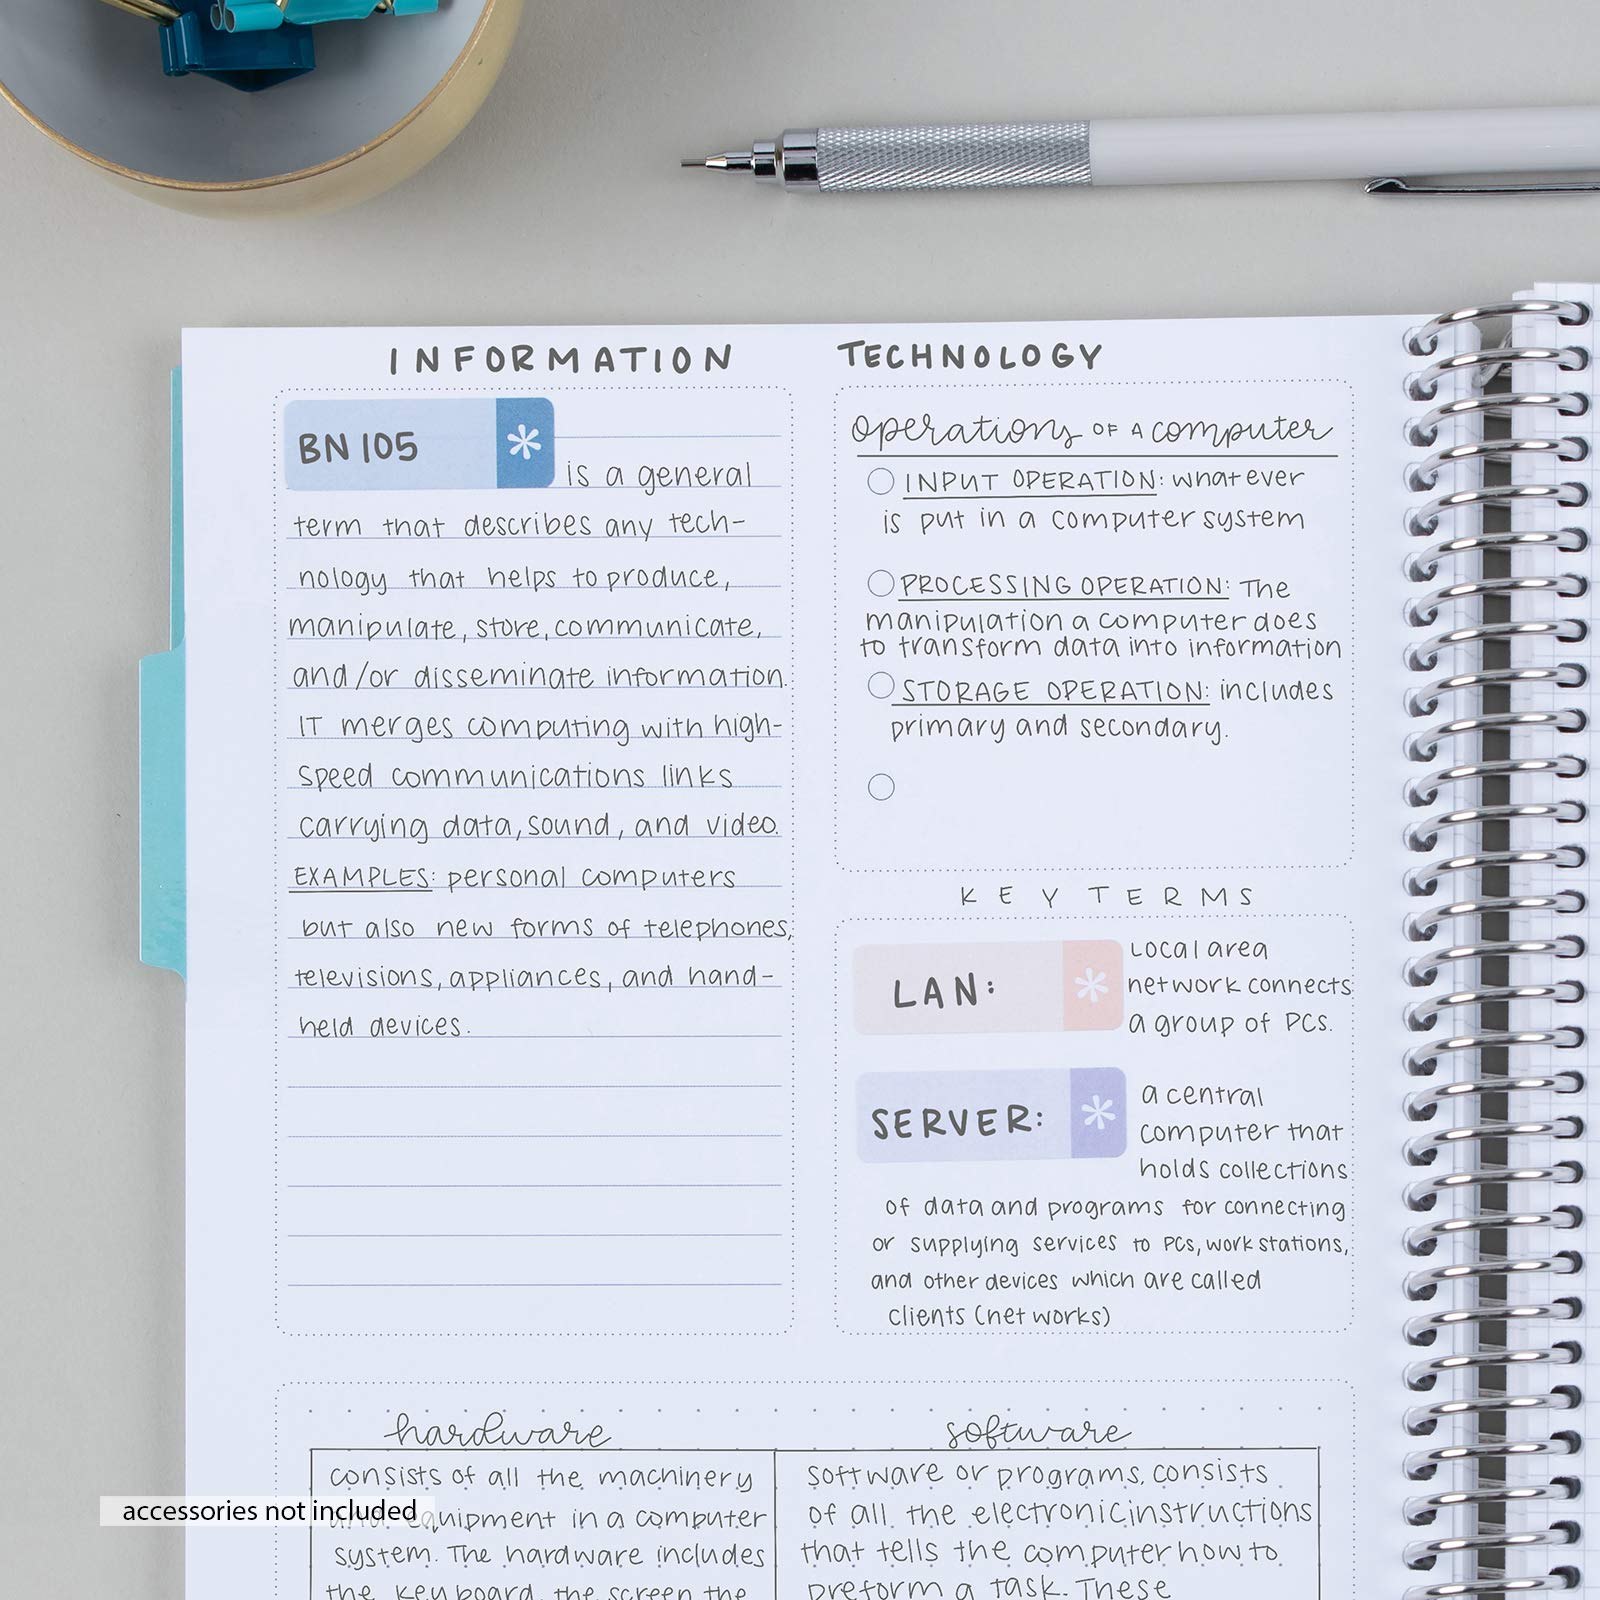 INFORMATION TECHNOLOGY
BN 105
is a general
term that describes any tech-
nology that helps to produce,
manipulate, store, communicate,
and/or disseminate information.
IT merges computing with high-
speed communications links
carrying data, sound, and video.
EXAMPLES: personal computers
but also new forms of telephones,
televisions, appliances, and hand-
held devices.
operations OF A computer
INPUT OPERATION: whatever
is put in a computer system
PROCESSING OPERATION: The
manipulation a computer does
to transform data into information
STORAGE OPERATION: includes
primary and secondary.
KEY TERMS
LAN:
Local area
network connects
a group of PCs.
SERVER:
a central
computer that
holds collections
of data and programs for connecting
or supplying services to PCs, workstations,
and other devices which are called
clients (networks)
hardware
consists of all the machinery
and equipment in a computer
system. The hardware includes
the keyboard, the screen the
software
software or programs, consists
of all the electronic instructions
that tells the computer how to
preform a task. These
accessories not included